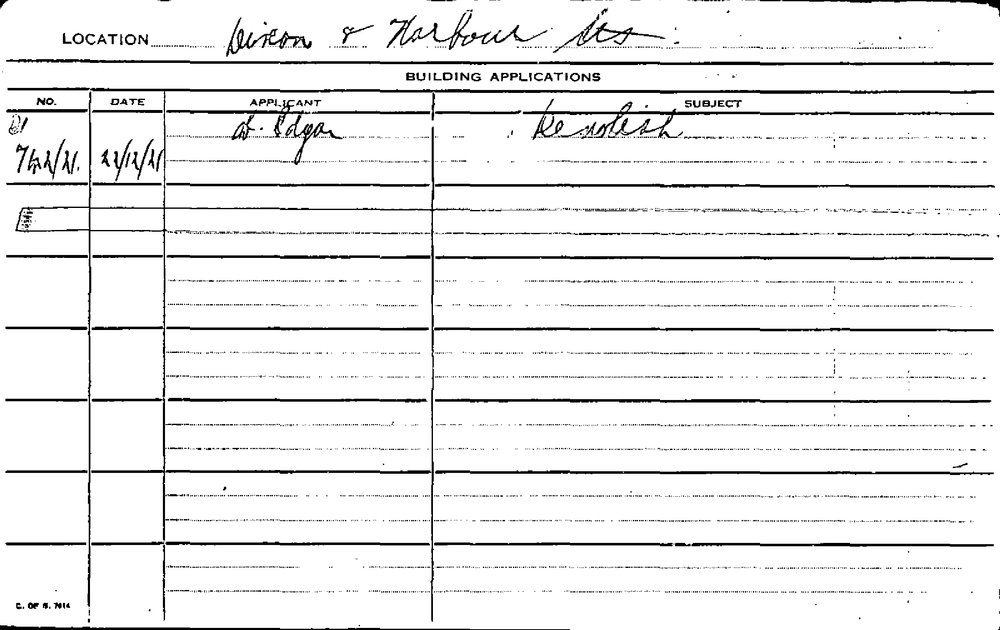 LOCATION Dixon & Harbour Sts.
BUILDING APPLICATIONS
NO. DATE APPLICANT SUBJECT
Edgar Demolish
22/12/21
C. OF S. 7614